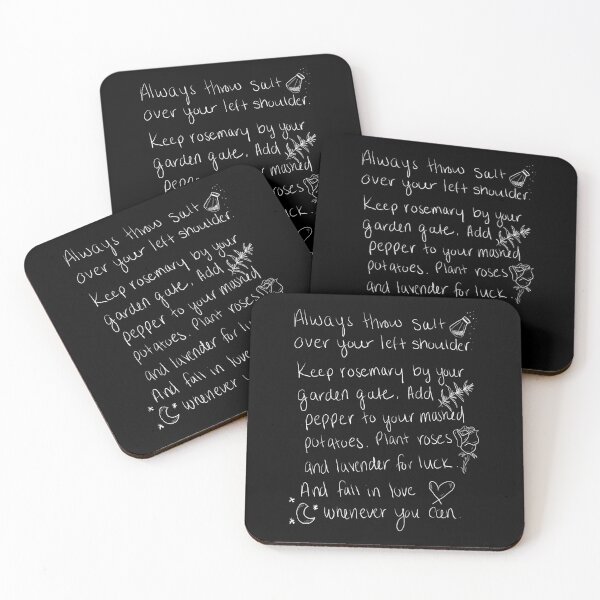 Always throw salt
over your left shoulder.
Keep rosemary by your
garden gate. Add
pepper to your mashed
Always throw salt
over your left shoulder.
Keep rosemary by your
garden gate. Add
pepper to your mashed
potatoes. Plant roses
and lavender for luck.
Always throw salt
over your left shoulder.
Keep rosemary by your
garden gate. Add
pepper to your mashed
potatoes. Plant roses
and lavender for
And fall in love
whenever
Always throw salt
over your left shoulder.
Keep rosemary by your
garden gate. Add
pepper to your mashed
potatoes. Plant roses
and lavender for luck.
And fall in love
whenever you can.